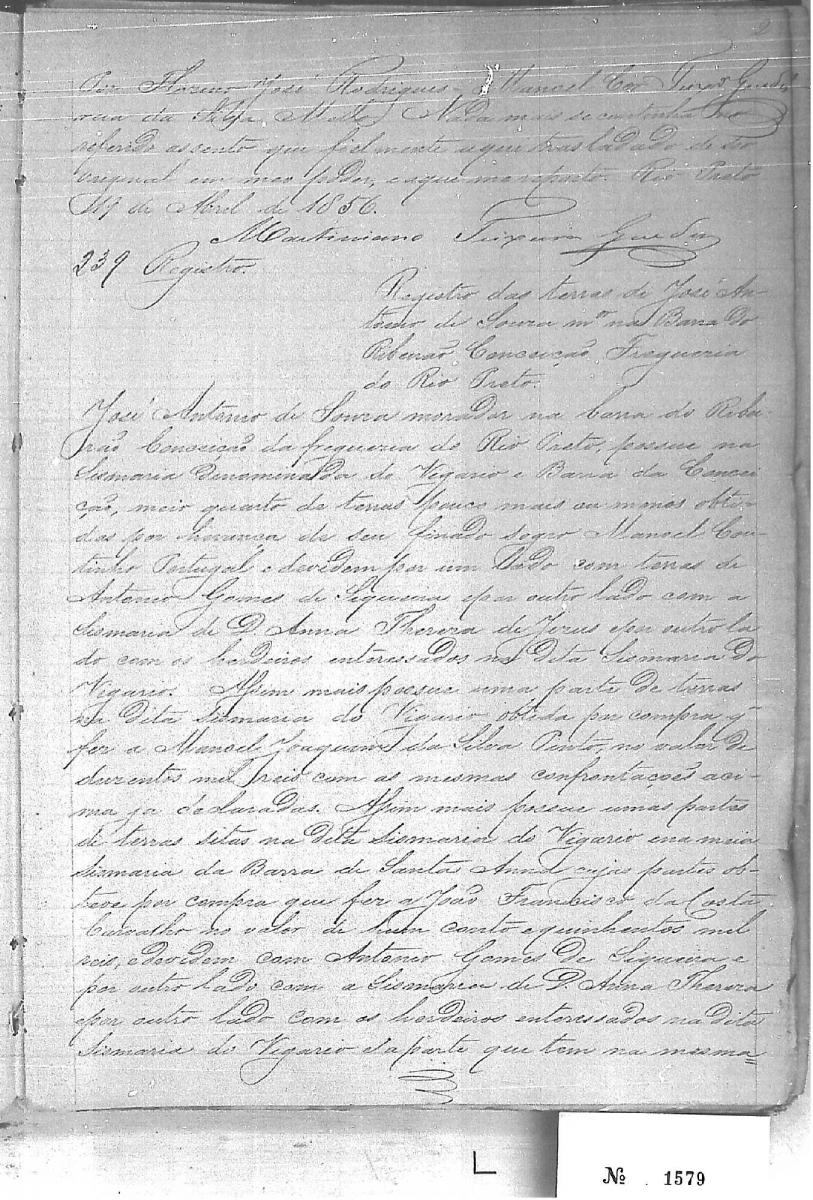 2
Por Floreno José Rodrigues - Manoel Cor
da Silva Mello. Nada mais se continha no
referido assento que fielmente aqui trasladado do seo
original em meo poder, e a que me reporto. Rio Preto
19 de Abril de 1856.
Martiniano Teixeira Guedes
239 Registro.
Registro das terras de José An-
tonio de Souza mor na Barra do
Ribeirão Conceição, Freguezia
do Rio Preto.
José Antonio de Souza morador na barra do Ribei-
rão Conceição da freguezia do Rio Preto, possue na
Sismaria denominada do Vigario e Barra da Concei-
ção, meio quarto de terras pouco mais ou menos obte-
das por herança de seu finado sogro Manoel Cou-
tinho Portugal e devedem por um lado com terras de
Antonio Gomes de Siqueira e por outro lado com a
Sismaria de D. Anna Thereza de Jesus e por outro la-
do com os herdeiros enteressados na dita Sismaria do
Vigario. Assim mais possue uma parte de terras
na dita Sismaria do Vigario obtida por compra q̃
fez a Manoel Joaquim da Silva Pinto, no valor de
duzentos mil reis com as mesmas confrontações aci-
ma ja declaradas. Assim mais possue umas partes
de terras sitas na dita Sismaria do Vigario e na meia
Sismaria da Barra de Santa Anna cujas partes ob-
teve por compra que fez a João Francisco da Costa
Carvalho no valor de hum conto e quinhentos mil
reis, e devedem com Antonio Gomes de Siqueira e
por outro lado com a Sismaria de D. Anna Thereza
e por outro lado com os herdeiros enteressados na dita
Sismaria do Vigario e a parte que tem na mesma=
Nº 1579